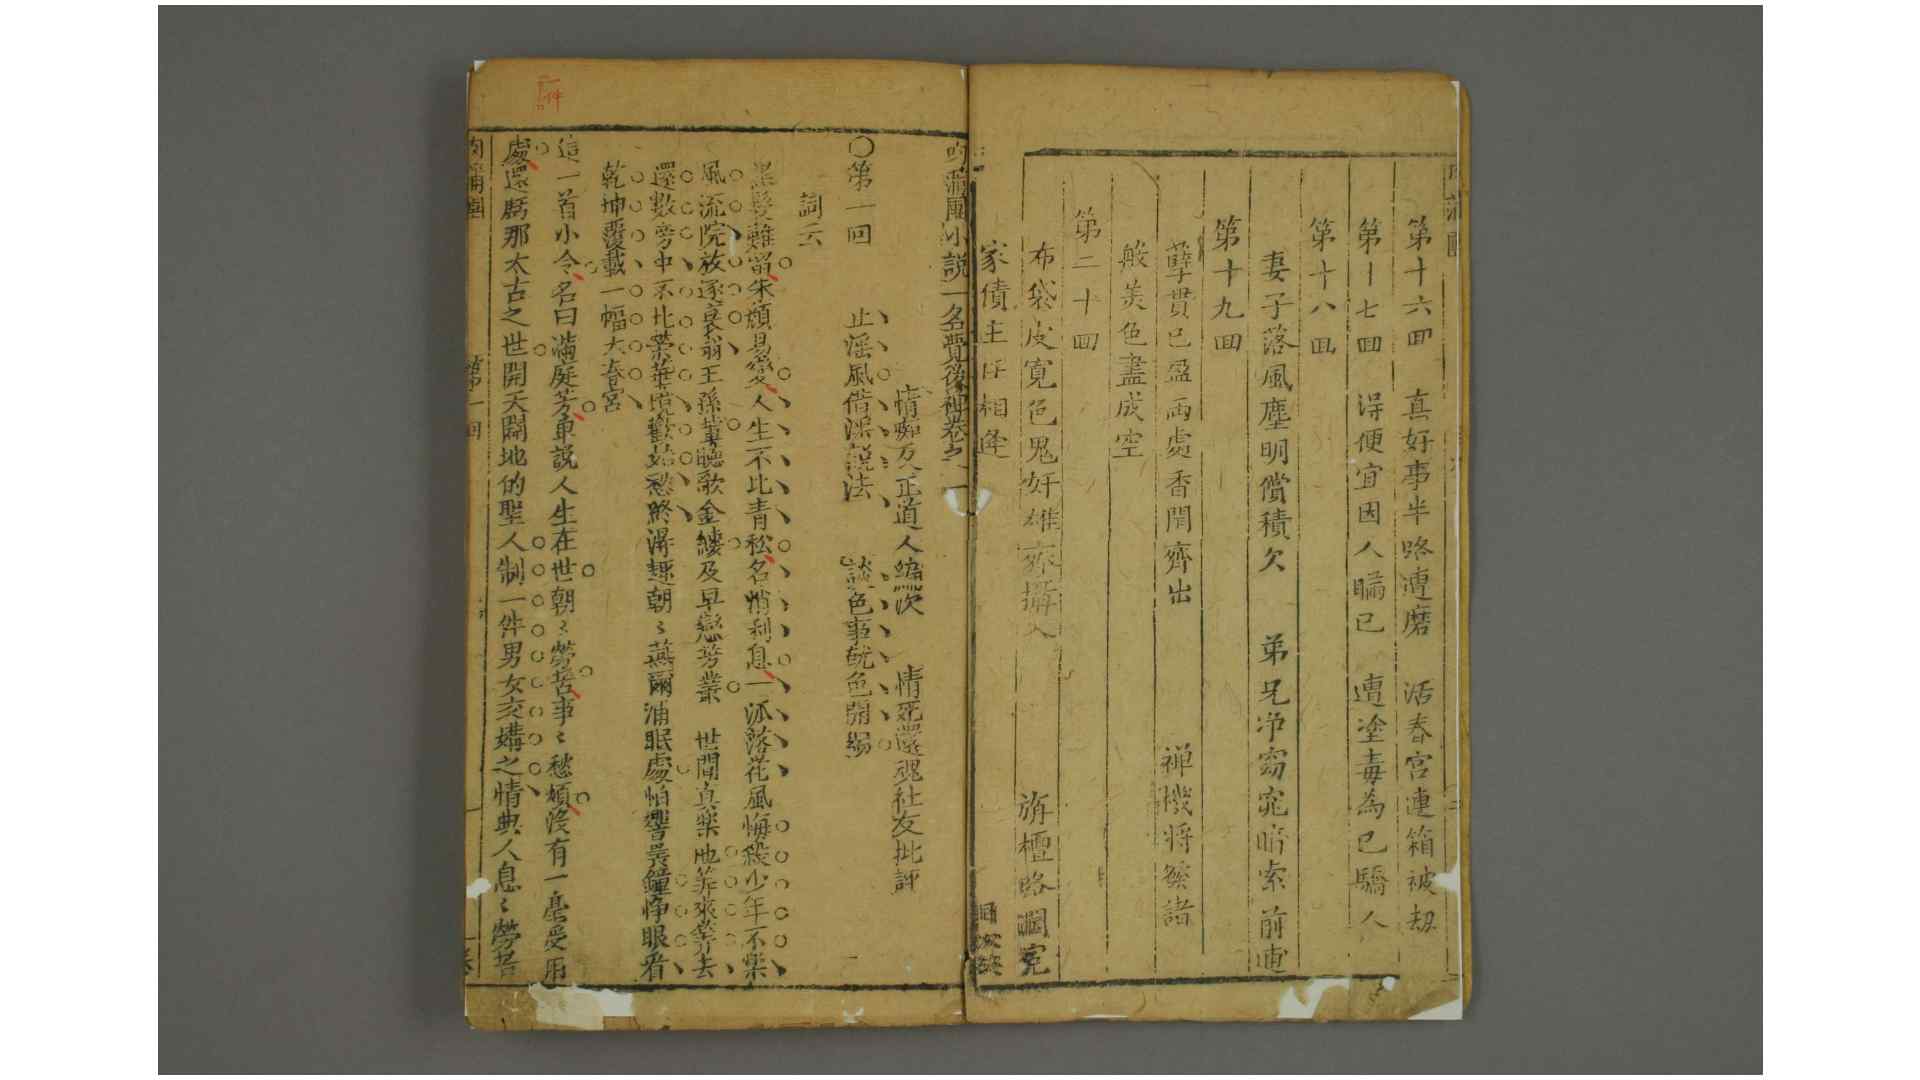 第十六回　真好事半路遭磨　活春宮連箱被劫
第十七回　淂便宜因人瞞已　遭塗毒為已驕人
第十八回
妻子落風塵明償積欠　弟兄浄窈窕暗索前逋
第十九回
孽貫已盈両處香閨齊出　禅機將發諸
般羙色盡成空
第二十回
布袋皮寛色鬼奸雄齐攝入　旃檀路濶冤
家債主任相逢
目次終
肉蒲團小説一名覺後禅卷之一
情痴反正道人編次　情死還魂社友批評
〇第一回　止淫風借淫説法　談色事就色開端
詞云
黒髮難留朱顔易變人生不比青松名悄利息一派落花風悔殺少年不樂
風流院放逐衰翁王孫輩聽歌金縷及早戀芳叢　世間真樂地筭來筭去
還數旁中不比榮華境歡始愁終淂趣朝〻燕爾浦眠處怕響晨鐘睁眼看
乾坤覆載一幅大春宮
這一首小令名曰滿庭芳单説人生在世朝〻勞苦事〻愁煩没有一毫受用
處還虧那太古之世開天闢地的聖人制一件男女交媾之情與人息〻勞苦
第一回